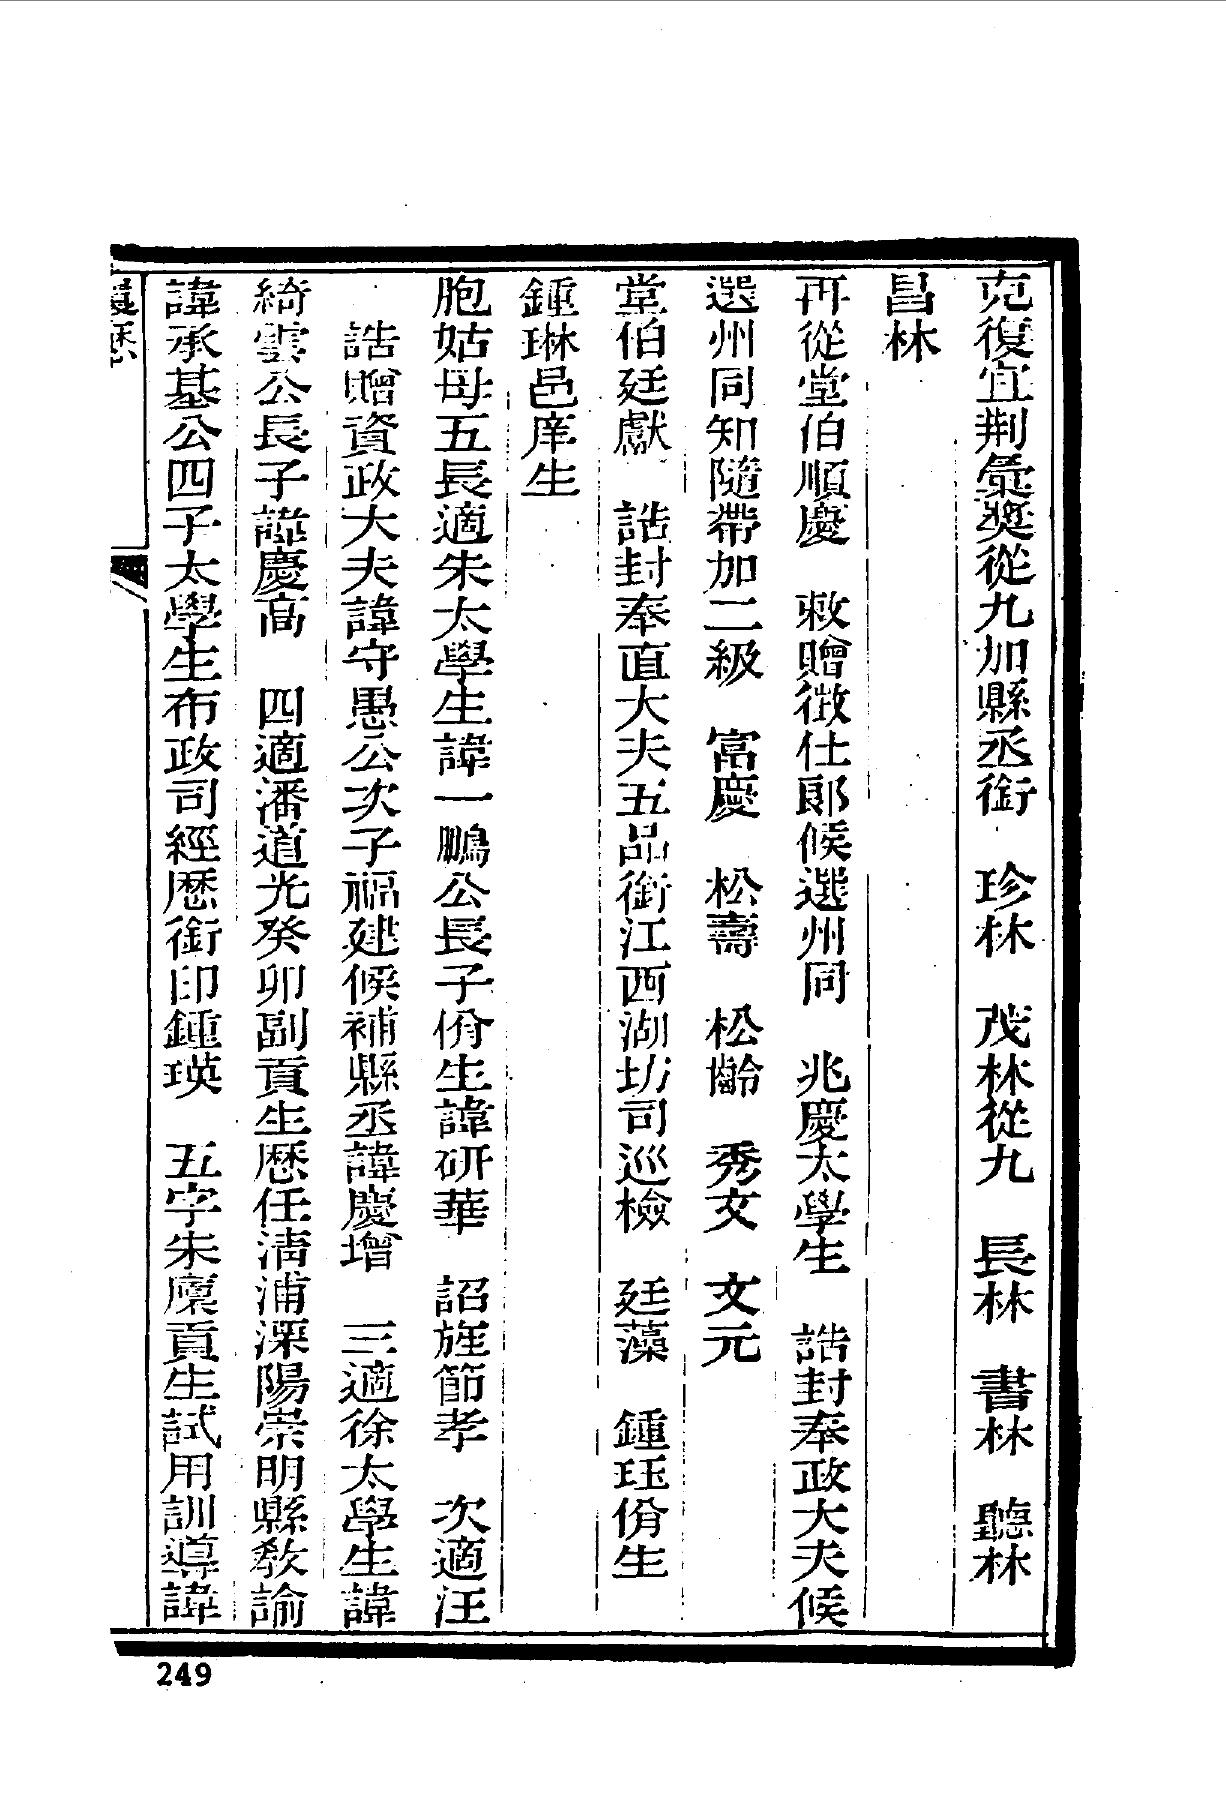 克復宜荆彙奬從九加縣丞銜　珍林　茂林從九　長林　書林　聽林
昌林
再從堂伯順慶　敕贈徵仕郎候選州同　兆慶太學生　誥封奉政大夫候
選州同知隨帶加二級　富慶　松壽　松齡　秀文　文元
堂伯廷獻　誥封奉直大夫五品銜江西湖坊司巡檢　廷藻　鍾珏佾生
鍾琳邑庠生
胞姑母五長適朱太學生諱一鵬公長子佾生諱研華　詔旌節孝　次適汪
誥贈資政大夫諱守愚公次子福建候補縣丞諱慶增　三適徐太學生諱
綺雲公長子諱慶高　四適潘道光癸卯副貢生歷任清浦溧陽崇明縣教諭
諱承基公四子太學生布政司經歷銜印鍾瑛　五字朱廩貢生試用訓導諱
履歷
249